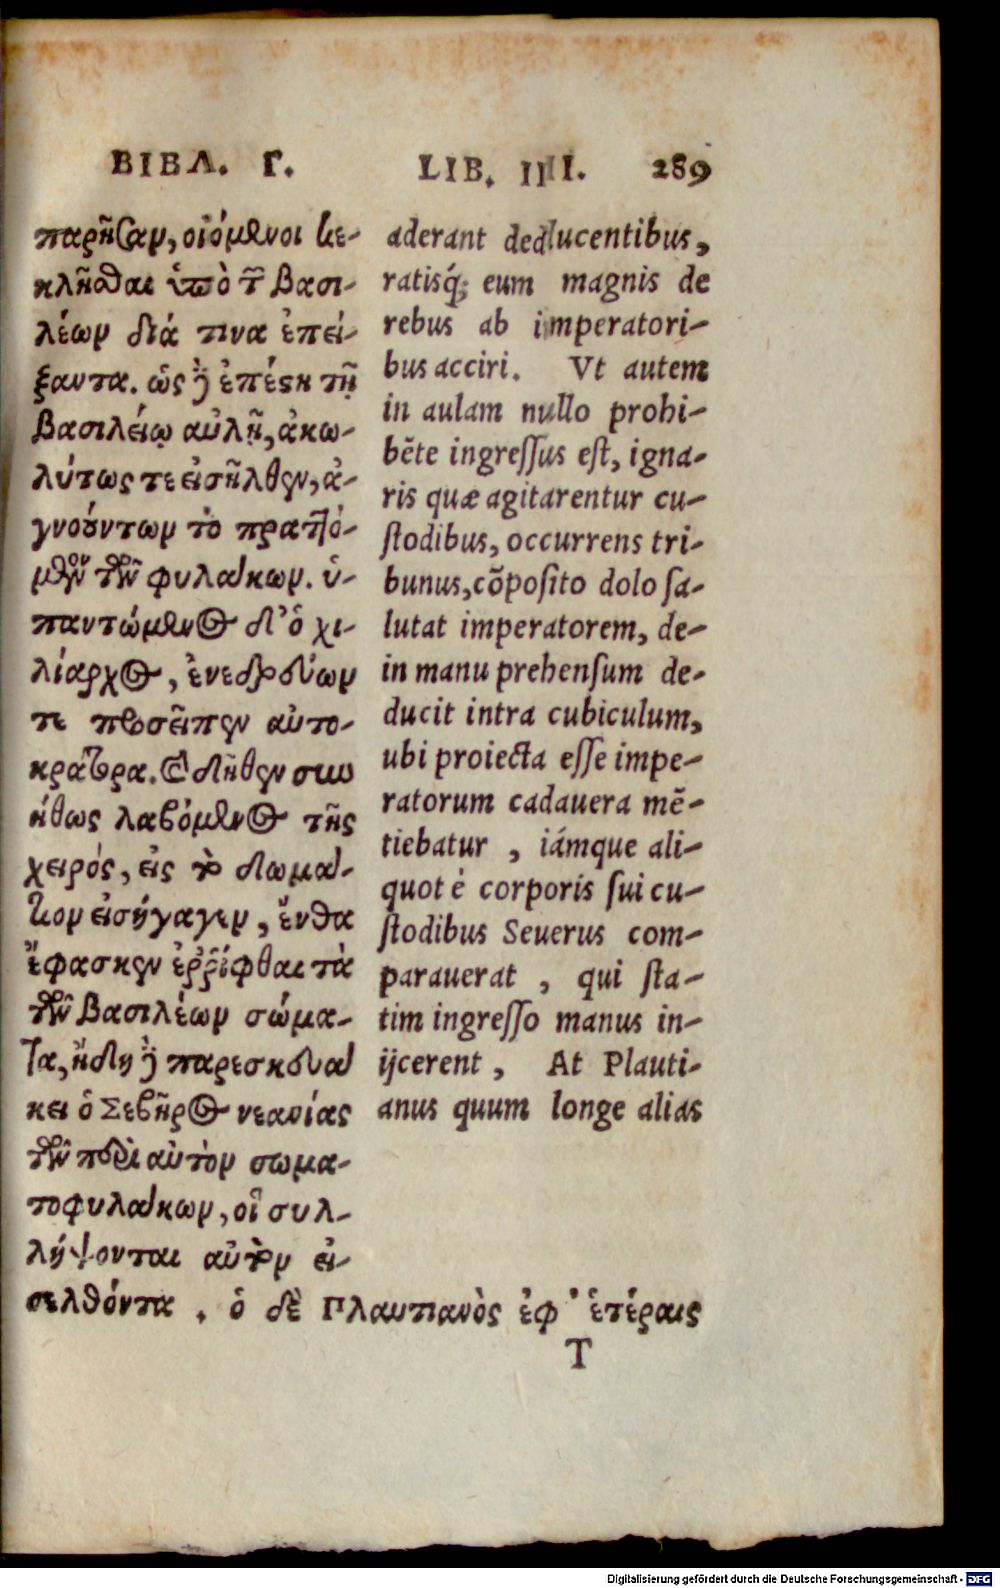 ΒΙΒΛ. Γ. LIB. III. 289
παρῆσαν, οἰόμενοι κε-
κλῆσθαι ὑπὸ τ̃ βασι-
λέων διά τινα ἐπεί-
ξαντα. ὡς δ̀ ἐπέστη τῇ
βασιλείῳ αὐλῇ, ἀκω-
λύτως τε εἰσῆλθεν, ἀ-
γνοούντων τὸ πραττό-
μενον τῶν φυλάκων. ὑ-
παντώμενος δ' ὁ χι-
λίαρχος, ἐνεδρεύων
τε προσεῖπεν αὐτο-
κράτορα. καὶ δῆθεν συν
ήθως λαβόμενος τῆς
χειρός, εἰς τὸ δωμά-
τιον εἰσήγαγεν, ἔνθα
ἔφασκεν ἐῤῥίφθαι τὰ
τῶν βασιλέων σώμα-
τα, ἤδη δ̀ παρεσκευά
κει ὁ Σεβῆρος νεανίας
τῶν περὶ αὐτὸν σωμα-
τοφυλάκων, οἳ συλ-
λήψονται αὐτὸν εἰ-
σελθόντα. ὁ δὲ Πλαυτιανὸς ἐφ' ἑτέραις
aderant deducentibus,
ratisq́; eum magnis de
rebus ab imperatori-
bus acciri. Vt autem
in aulam nullo prohi-
bēte ingreſſus eſt, igna-
ris quæ agitarentur cu-
ſtodibus, occurrens tri-
bunus, cōpoſito dolo ſa-
lutat imperatorem, de-
in manu prehenſum de-
ducit intra cubiculum,
ubi proiecta eſſe impe-
ratorum cadauera mē-
tiebatur, iámque ali-
quot è corporis ſui cu-
ſtodibus Seuerus com-
parauerat, qui ſta-
tim ingreſſo manus in-
ijcerent, At Plauti-
anus quum longe alias
T
Digitalisierung gefördert durch die Deutsche Forschungsgemeinschaft - DFG